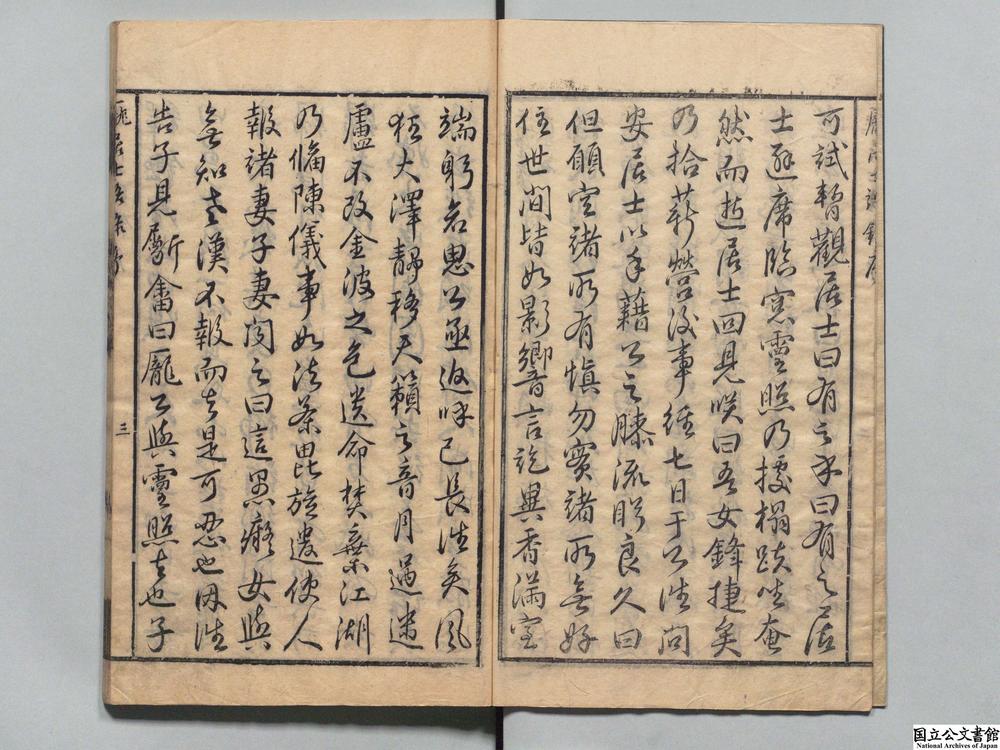 可試暫觀居士曰有之乎曰有之居
士避席臨窓靈照乃據榻趺坐奄
然而逝居士回見笑曰吾女鋒捷矣
乃拾薪營後事經七日于公往問
安居士以手藉公之膝流眄良久曰
但願空諸所有愼勿實諸所無好
住世間皆如影響言訖異香滿室
端躬若思公亟追呼已長往矣風
狂大澤靜移天籟之音月過迷
盧不改金波之色遺命焚棄江湖
乃備陳儀事如法茶毘旋遣使人
報諸妻子妻聞之曰這愚癡女與
無知老漢不報而去是可忍也因往
告子見斸畬曰龐公與靈照去也子
斫
龐居士語錄序
三
龐居士語錄序
国立公文書館
National Archives of Japan